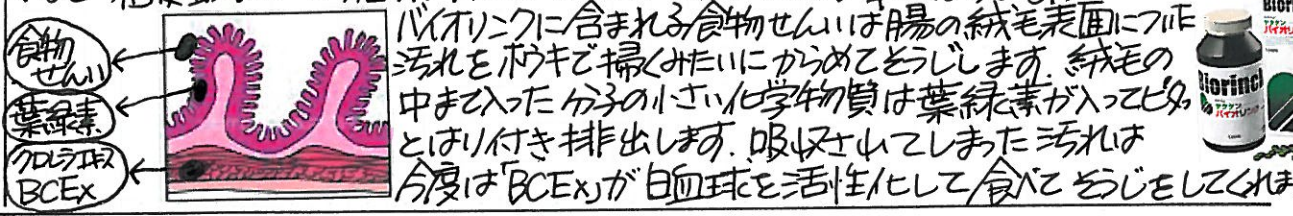 食物
せんい
葉緑素
クロレラエキス
BCEx
バイオリンクに含まれる食物せんいは腸の絨毛表面についた
汚れをホウキで掃くみたいにからめてそうじします。絨毛の
中まで入った分子の小さい化学物質は葉緑素が入ってピタッ
とはり付き排出します。吸収されてしまった汚れは
今度は「BCEx」が白血球を活性化して食べてそうじをしてくれま
Biorinck
ヤクケン
バイオリンク